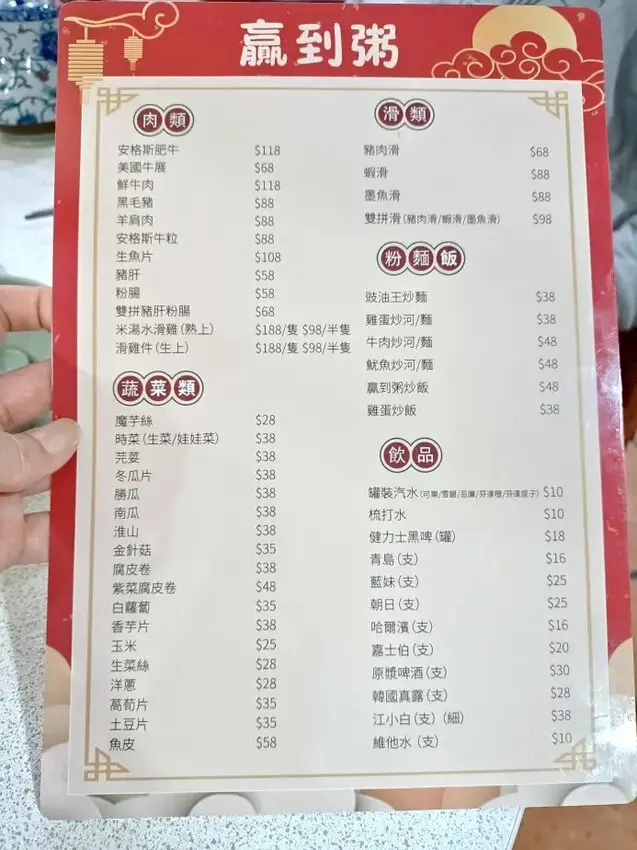 贏到粥
肉類
安格斯肥牛 $118
美國牛展 $68
鮮牛肉 $118
黑毛豬 $88
羊肩肉 $88
安格斯牛粒 $88
生魚片 $108
豬肝 $58
粉腸 $58
雙拼豬肝粉腸 $68
米湯水滑雞(熟上) $188/隻 $98/半隻
滑雞件(生上) $188/隻 $98/半隻
蔬菜類
魔芋絲 $28
時菜(生菜/娃娃菜) $38
芫荽 $38
冬瓜片 $38
勝瓜 $38
南瓜 $38
淮山 $38
金針菇 $35
腐皮卷 $38
紫菜腐皮卷 $48
白蘿蔔 $35
香芋片 $38
玉米 $25
生菜絲 $28
洋蔥 $28
萵荀片 $35
土豆片 $35
魚皮 $58
滑類
豬肉滑 $68
蝦滑 $88
墨魚滑 $88
雙拼滑(豬肉滑/蝦滑/墨魚滑) $98
粉麵飯
豉油王炒麵 $38
雞蛋炒河/麵 $38
牛肉炒河/麵 $48
魷魚炒河/麵 $48
贏到粥炒飯 $48
雞蛋炒飯 $38
飲品
罐裝汽水(可樂/雪碧/忌廉/芬達橙/芬達提子) $10
梳打水 $10
健力士黑啤(罐) $18
青島(支) $16
藍妹(支) $25
朝日(支) $25
哈爾濱(支) $16
嘉士伯(支) $20
原漿啤酒(支) $30
韓國真露(支) $28
江小白(支)(細) $38
維他水(支) $10